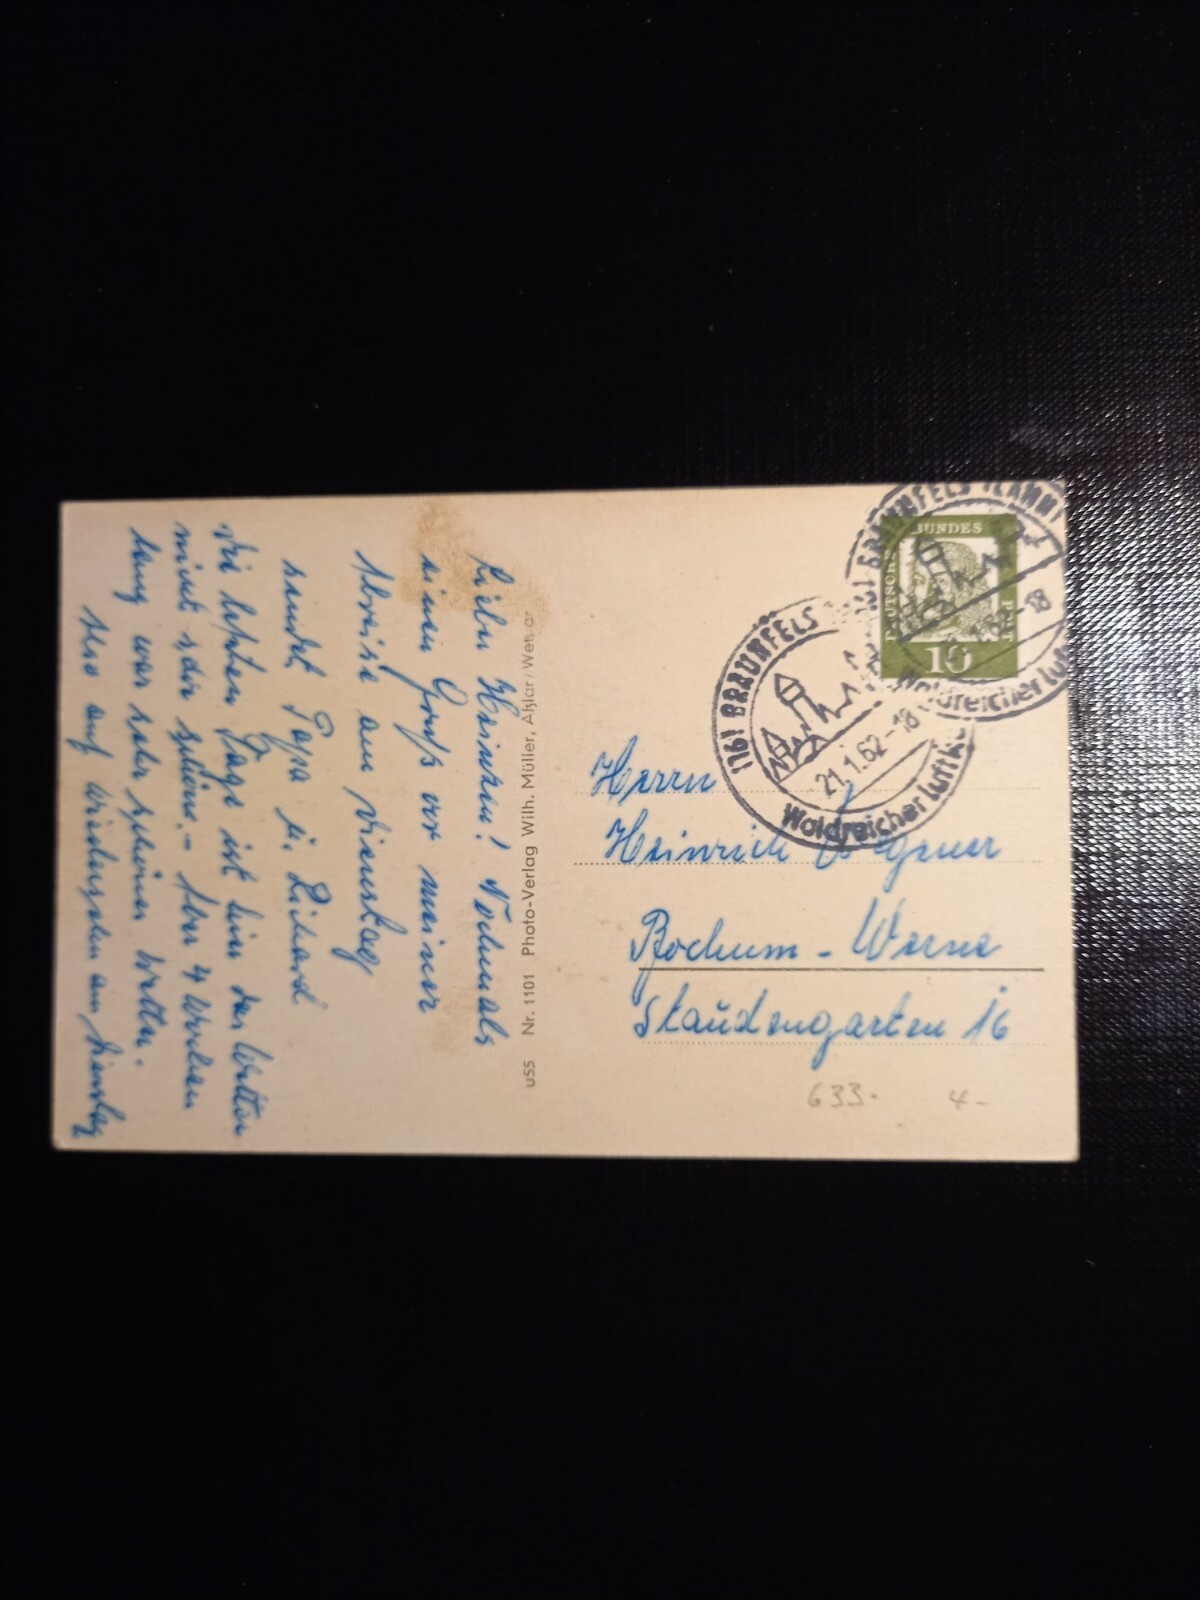 Lieber Heinchen! Nochmals
einen Gruß vor meiner
Abreise am Dienstag
sendet Papa u. Richard
Die letzten Tage ist hier das Wetter
nicht sehr schön. - Aber 4 Wochen
lang war sehr schönes Wetter.
Also auf Wiedersehen am Dienstag
USS Nr. 1101 Photo-Verlag Wilh. Müller, Aßlar/Wetzlar
DEUTSCHE BUNDESPOST
10
(16) BRAUNFELS (LAHN)
Waldreicher Luftk
-18
(16) BRAUNFELS
21.1.62-18
Waldreicher Luftk
Herrn
Heinrich Wegener
Bochum - Werne
Staudengarten 16
633. 4-